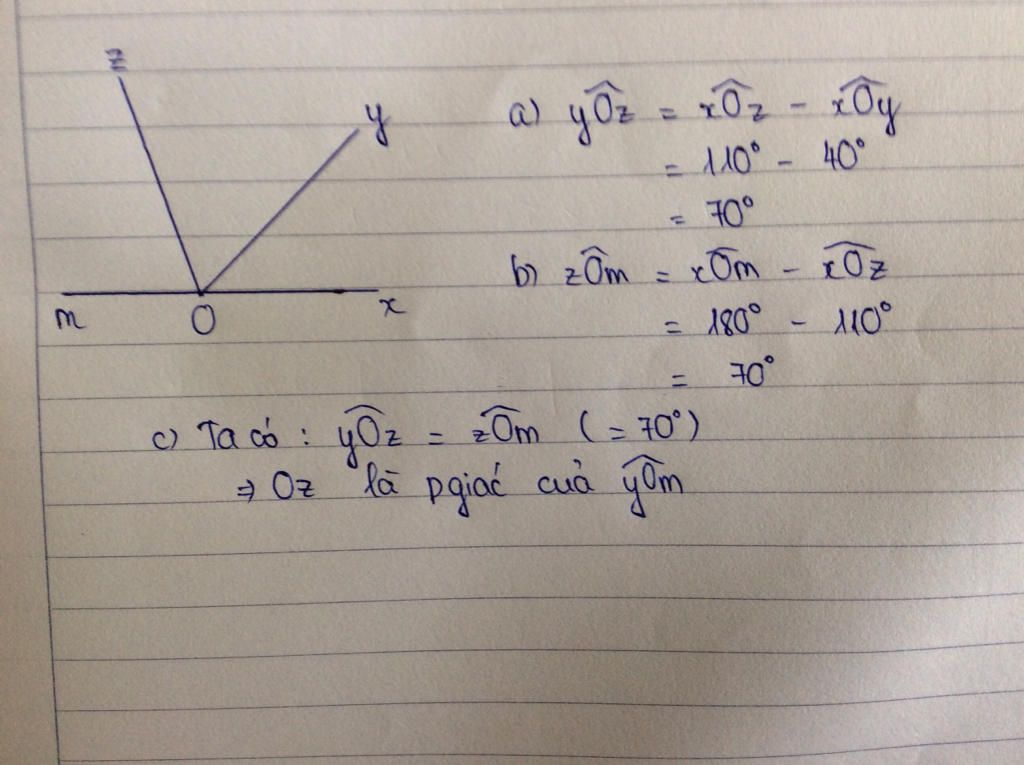 z
y
m
O
x
a) yÔz = xÔz - xÔy
= 110° - 40°
= 70°
b) zÔm = xÔm - xÔz
= 180° - 110°
= 70°
c) Ta có : yÔz = zÔm (= 70°)
⇒ Oz là pgiác của yÔm